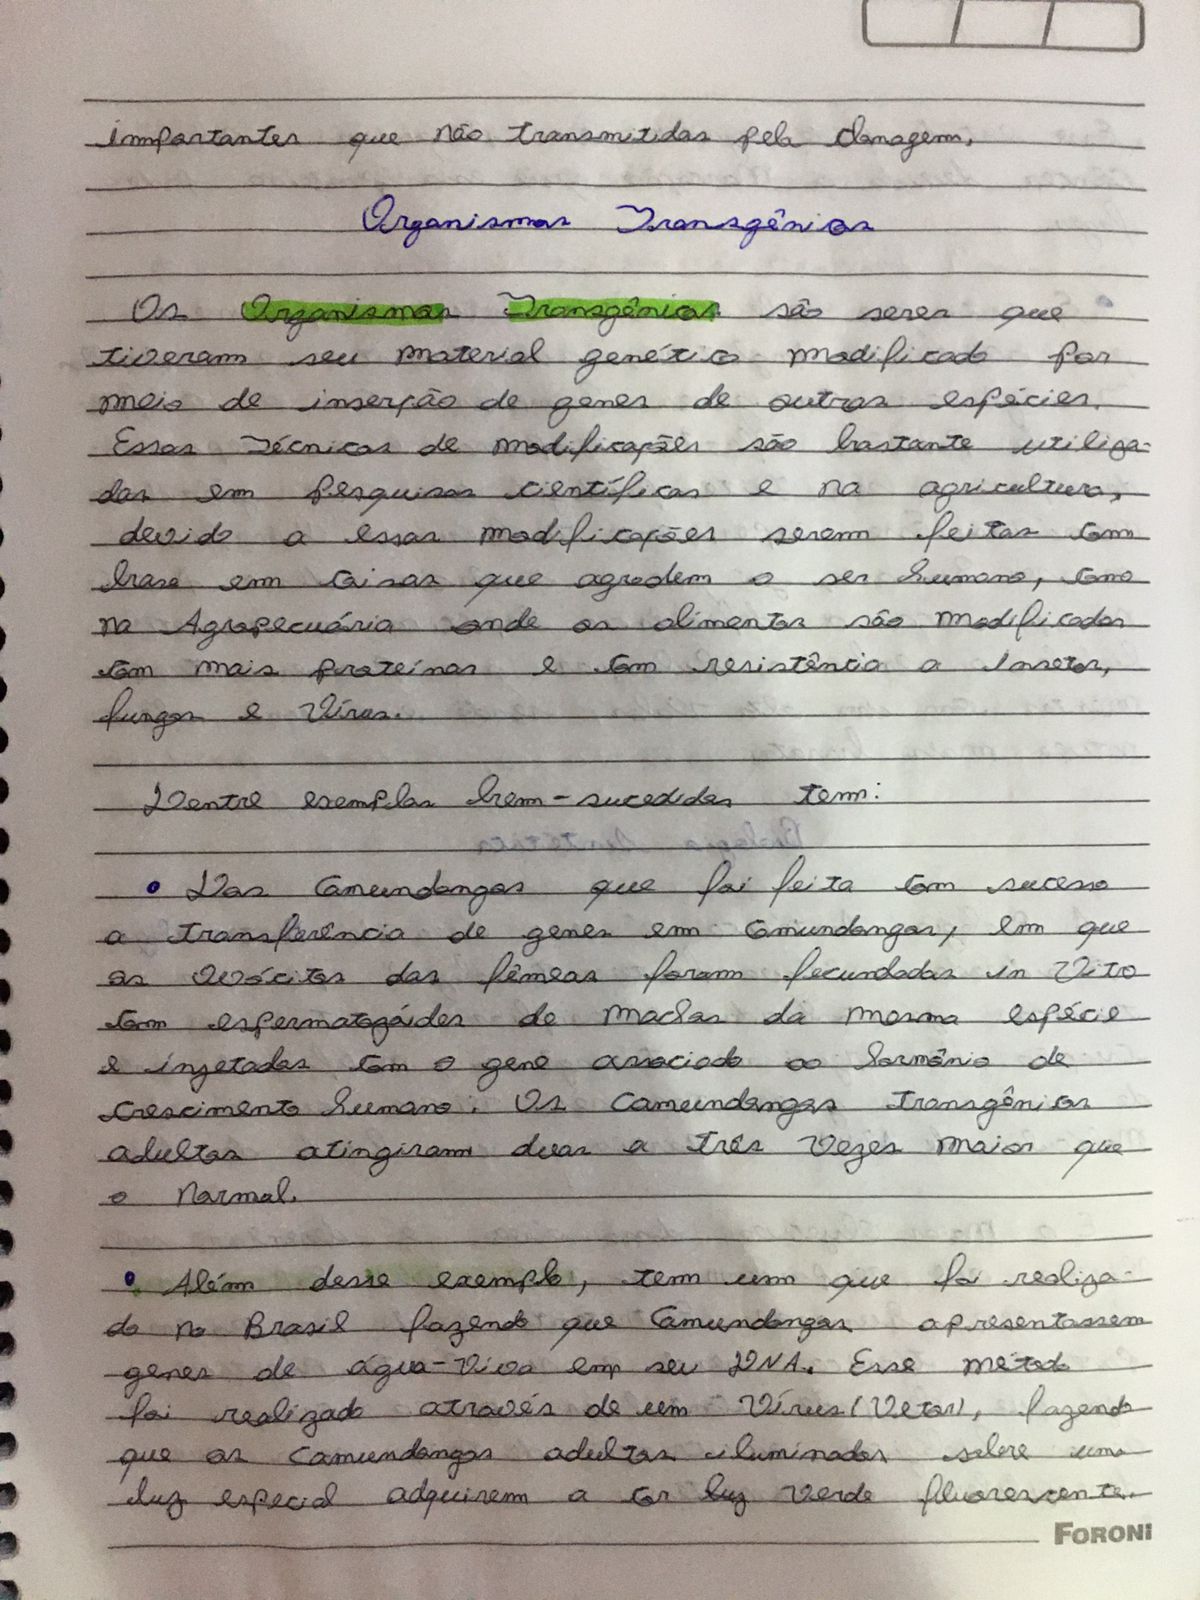 importantes que não transmitidas pela clonagem.
Organismos Transgênicos
Os Organismos Transgênicos são seres que
tiveram seu material genético modificado por
meio de inserção de genes de outras espécies.
Essas Técnicas de modificações são bastante utiliza-
das em pesquisas científicas e na agricultura,
devido a essas modificações serem feitas com
base em coisas que agradem o ser humano, como
na Agropecuária onde os alimentos são modificados
com mais proteínas e com resistência a Insetos,
fungos e Vírus.
Dentre exemplos bem-sucedidos tem:
• Dos Camundongos que foi feita com suceso
a transferência de genes em Camundongos, em que
os ovócitos das fêmeas foram fecundados in Vitro
com espermatozóides de machos da mesma espécie
e injetados com o gene associado ao hormônio de
crescimento humano. Os camundongos transgênicos
adultos atingiram duas a três vezes maior que
o Normal.
• Além desse exemplo, tem um que foi realiza-
do no Brasil fazendo que Camundongos apresentassem
genes de água-viva em seu DNA. Esse método
foi realizado através de um Vírus (Vetor), fazendo
que os camundongos adultos iluminados sobre uma
luz especial adquirem a cor luz verde fluorescente.
FORONI